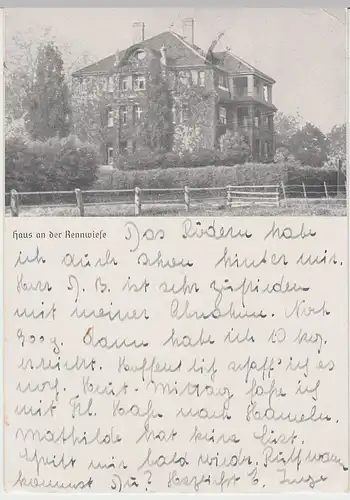 Haus an der Rennwiese
Das Rödern habe
ich auch schon hinter mir.
Herr D. B. ist sehr zufrieden
mit meiner Abnahme. Noch
900g. dann habe ich 10 kg.
erreicht. Hoffentlich schaff' ich es
noch. Heut. Mittag fahre ich
mit Frl. Hase nach Hameln.
Mathilde hat keine Lust.
Schreibt mir bald wieder. Rolf wann
kommst Du? Herzlichst E. Inge